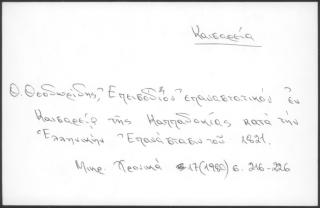 Καισαρεία
Θ. Θεοδωρίδης, Ἐπεισόδιον ἐπαναστατικόν ἐν
Καισαρείᾳ τῆς Καππαδοκίας κατά τήν
Ἑλληνικήν Ἐπανάστασιν τοῦ 1821.
Μικρ. Χρονικά 17 (1980) σ. 216-226